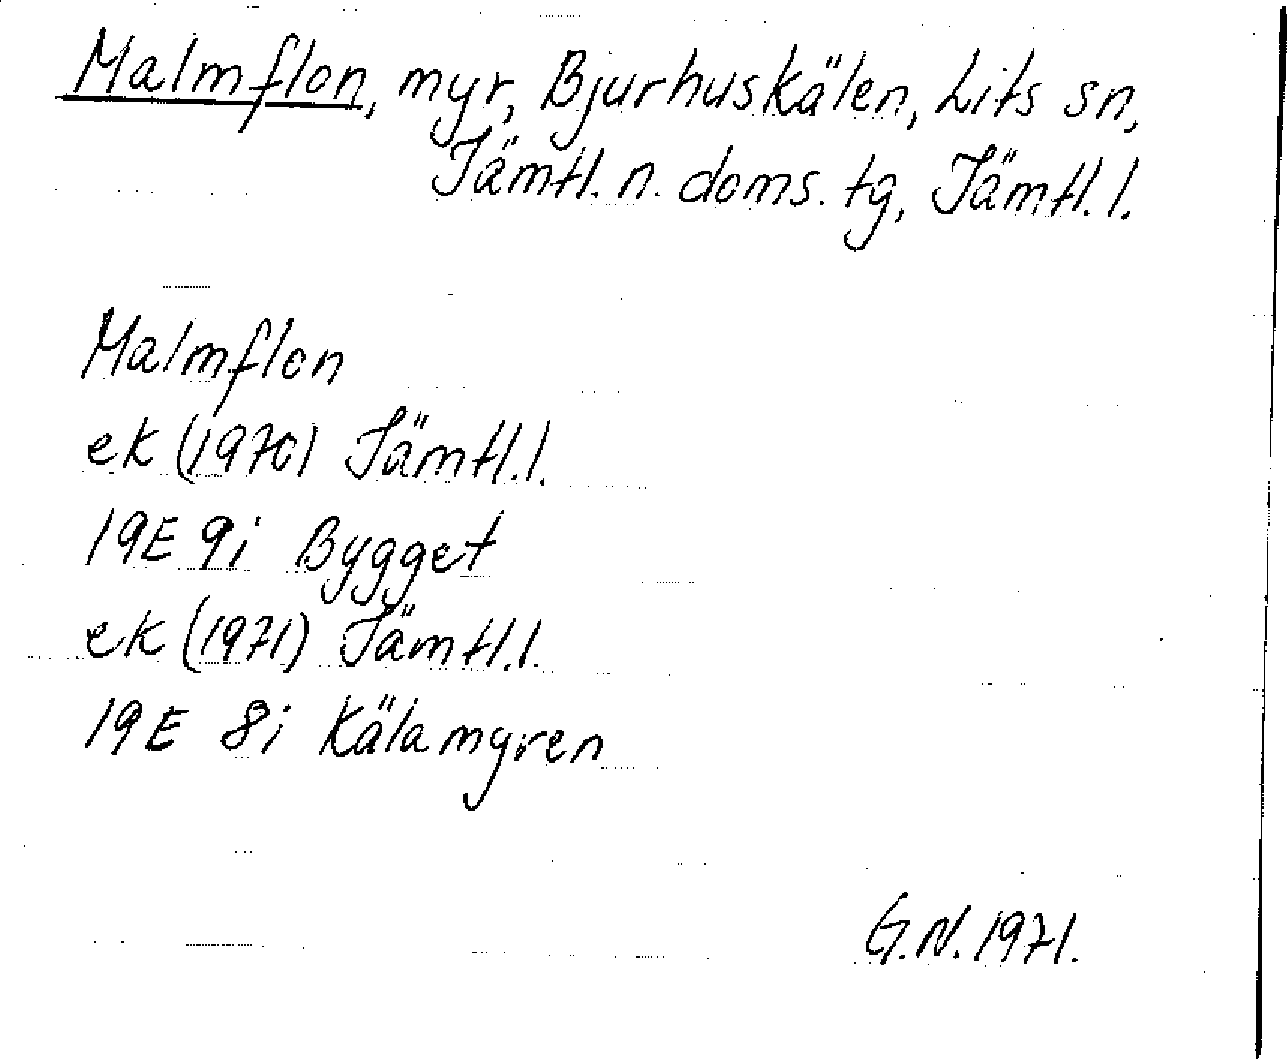 Malmflon, myr, Bjurhuskälen, Lits sn,
Jämtl. n. doms. tg, Jämtl. l.
Malmflon
ek (1970) Jämtl. l.
19E 9i Bygget
ek (1971) Jämtl. l.
19E 8i Kälamyren
G.N. 1971.